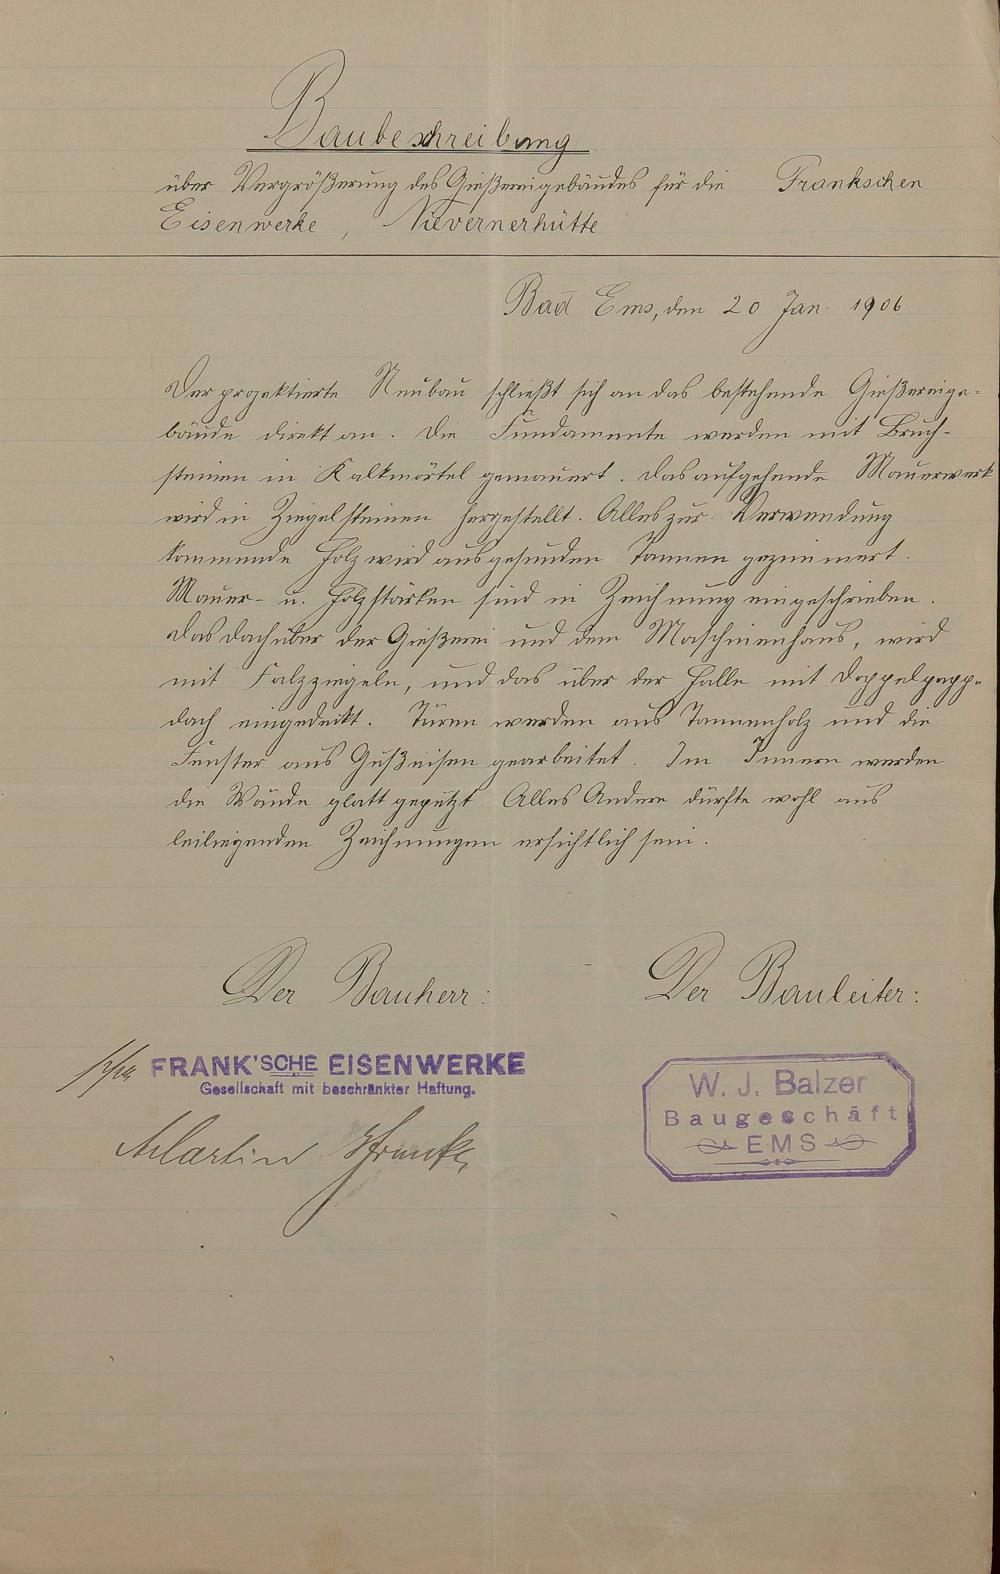 Baubeschreibung
über Vergrößerung des Gießereigebäudes für die Frankschen
Eisenwerke, Nievernerhütte
Bad Ems, den 20 Jan. 1906
Der projektierte Neubau schließt sich an das bestehende Gießereige-
bäude direkt an. Die Fundamente werden mit Bruch-
steinen in Kalkmörtel gemauert. Das aufgehende Mauerwerk
wird in Ziegelsteinen hergestellt. Alles zur Verwendung
kommende Holz wird aus gesunden Tannen gezimmert.
Mauer- u. Holzstärken sind in Zeichnung eingeschrieben.
Das Dach über der Gießerei und dem Maschinenhaus, wird
mit Falzziegeln, und das über der Halle mit Doppelpapp-
dach eingedeckt. Türen werden aus Tannenholz und die
Fenster aus Gußeisen gearbeitet. Im Innern werden
die Wände glatt geputzt. Alles Andere dürfte wohl aus
beiliegenden Zeichnungen ersichtlich sein.
Der Bauherr: Der Bauleiter:
FRANK'SCHE EISENWERKE
Gesellschaft mit beschränkter Haftung.
Martin
W. J. Balzer
Baugeschäft
EMS